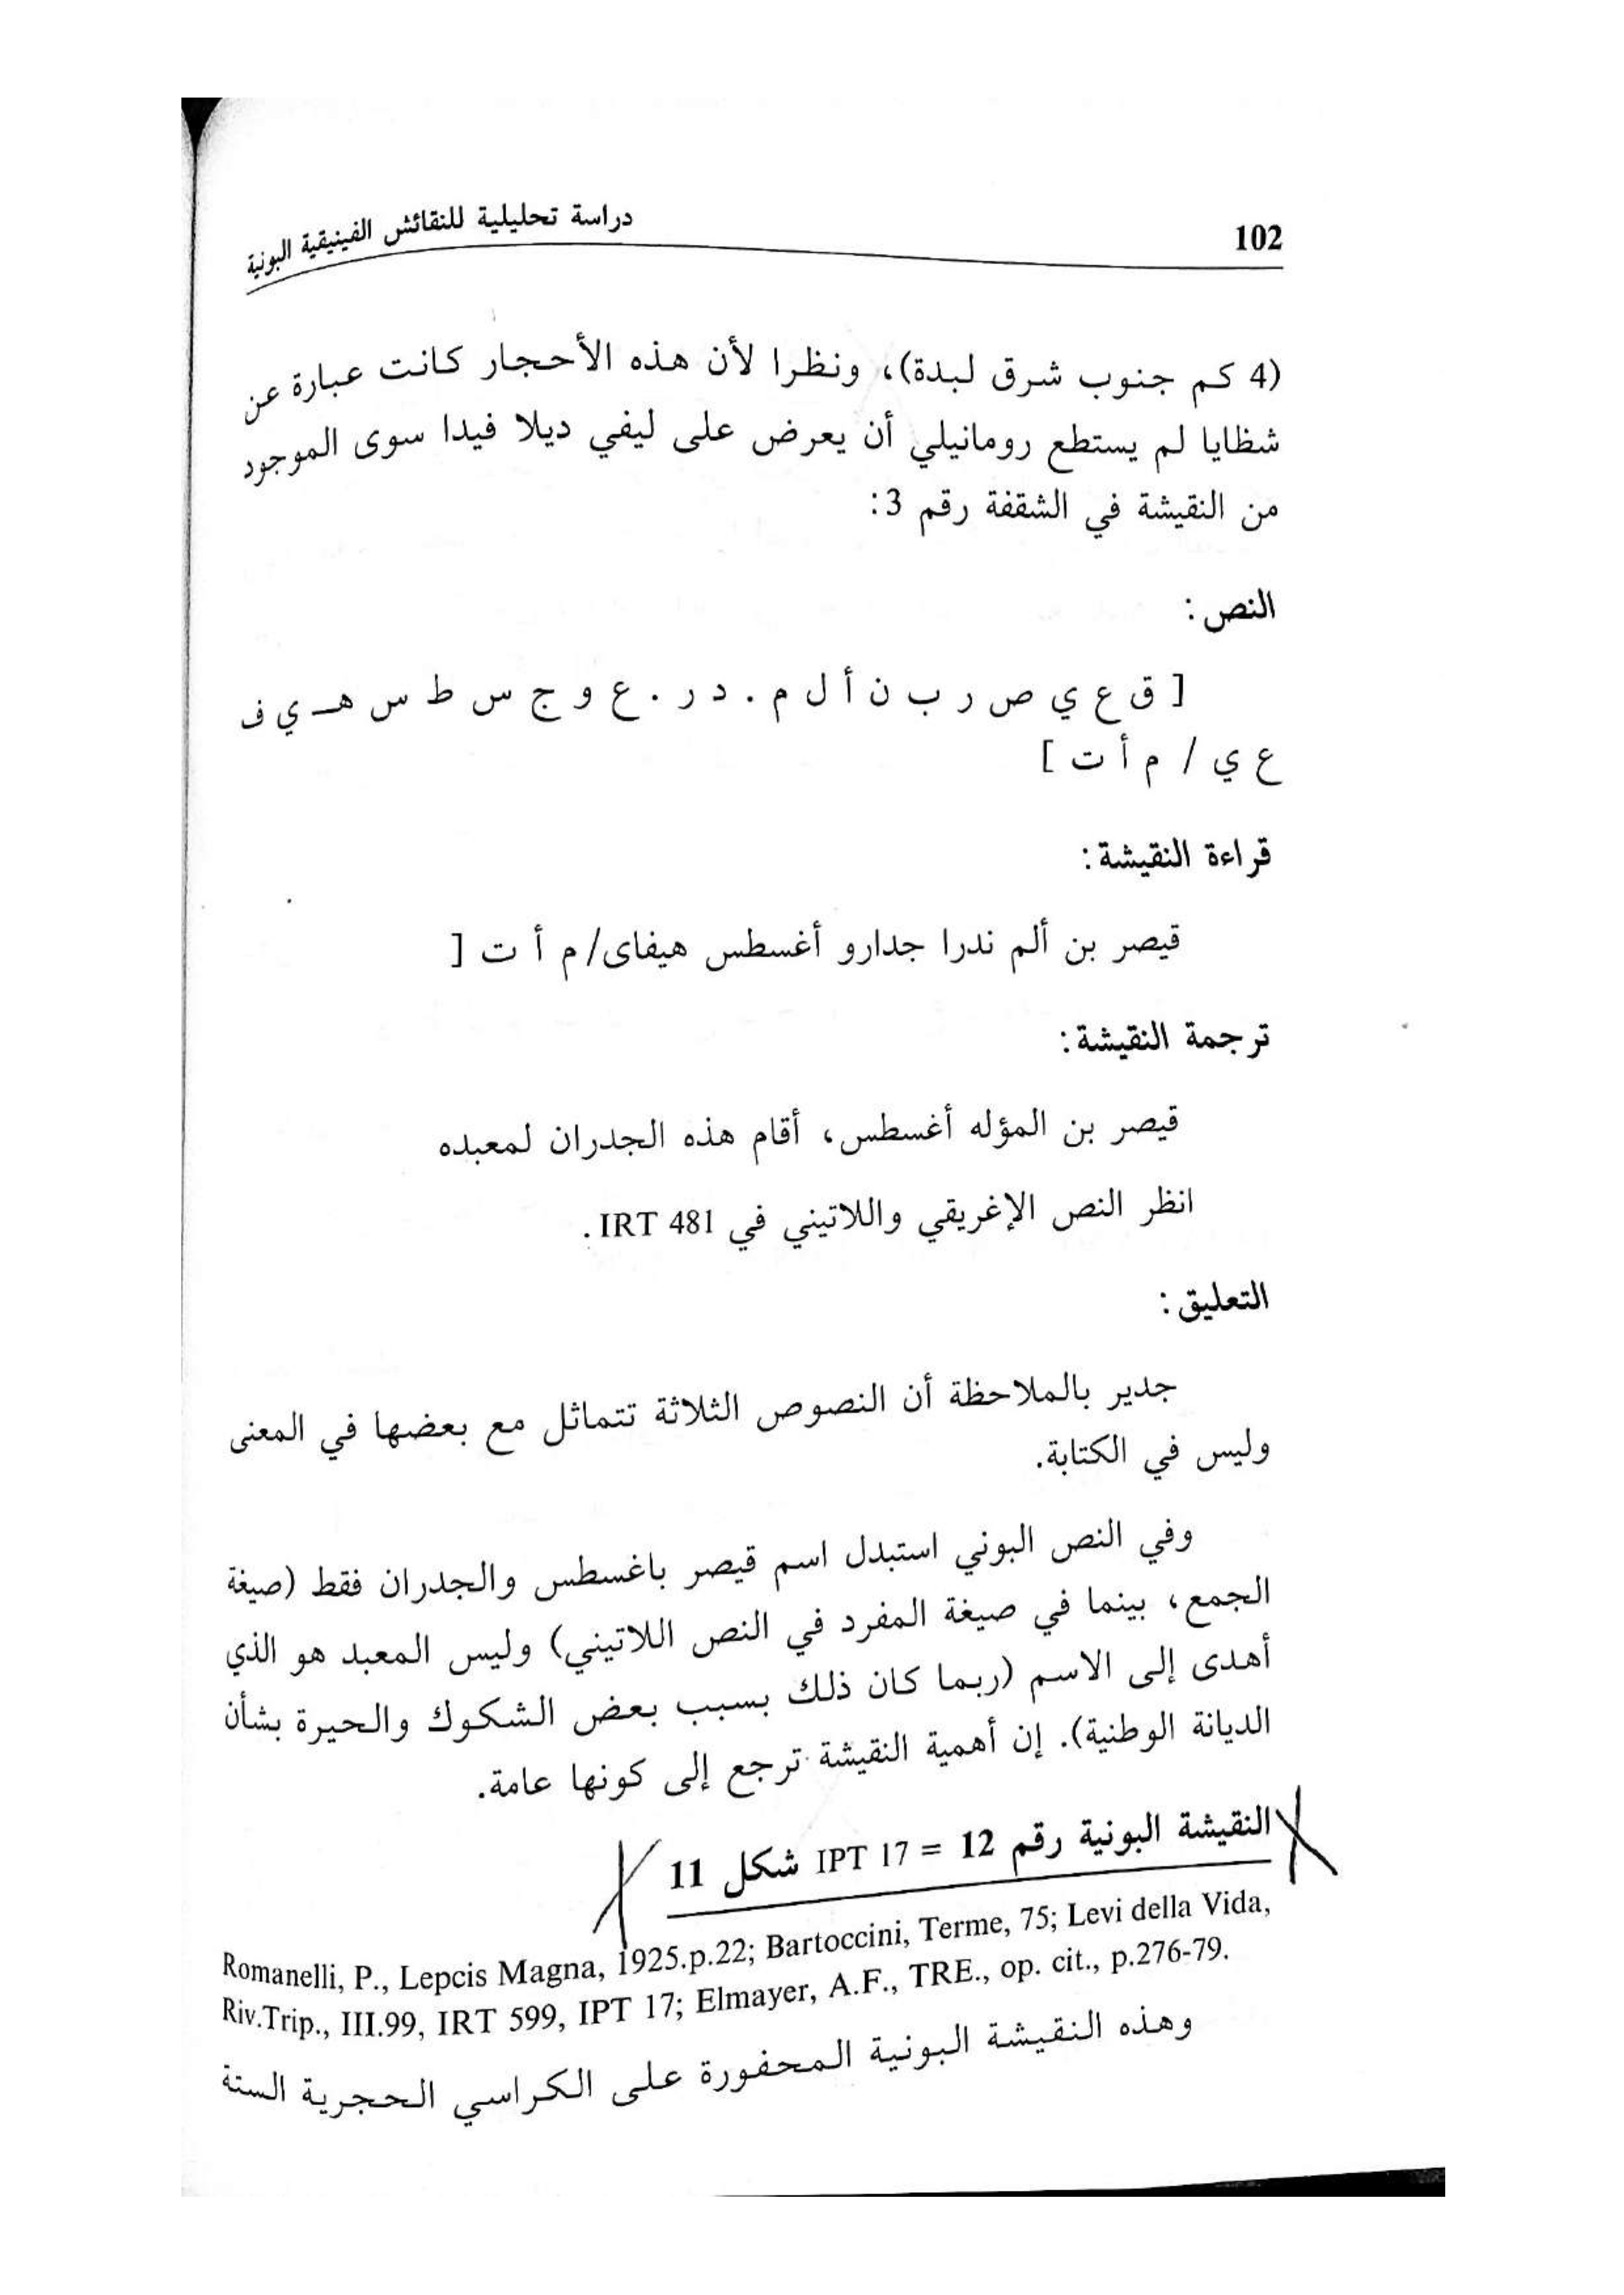 102
دراسة تحليلية للنقائش الفينيقية البونية
(4 كم جنوب شرق لبدة)، ونظرا لأن هذه الأحجار كانت عبارة عن
شظايا لم يستطع رومانيلي أن يعرض على ليفي ديلا فيدا سوى الموجود
من النقيشة في الشقفة رقم 3:
النص:
[ ق ع ي ص ر ب ن أ ل م . د ر . ع و ج س ط س هـ ي ف
ع ي / م أ ت ]
قراءة النقيشة:
قيصر بن ألم ندرا جدارو أغسطس هيفاى/ م أ ت [
ترجمة النقيشة:
قيصر بن المؤله أغسطس، أقام هذه الجدران لمعبده
انظر النص الإغريقي واللاتيني في IRT 481 .
التعليق:
جدير بالملاحظة أن النصوص الثلاثة تتماثل مع بعضها في المعنى
وليس في الكتابة.
وفي النص البوني استبدل اسم قيصر باغسطس والجدران فقط (صيغة
الجمع، بينما في صيغة المفرد في النص اللاتيني) وليس المعبد هو الذي
أهدى إلى الاسم (ربما كان ذلك بسبب بعض الشكوك والحيرة بشأن
الديانة الوطنية). إن أهمية النقيشة ترجع إلى كونها عامة.
النقيشة البونية رقم 12 = IPT 17 شكل 11
Romanelli, P., Lepcis Magna, 1925.p.22; Bartoccini, Terme, 75; Levi della Vida,
Riv.Trip., III.99, IRT 599, IPT 17; Elmayer, A.F., TRE., op. cit., p.276-79.
وهذه النقيشة البونية المحفورة على الكراسي الحجرية الستة